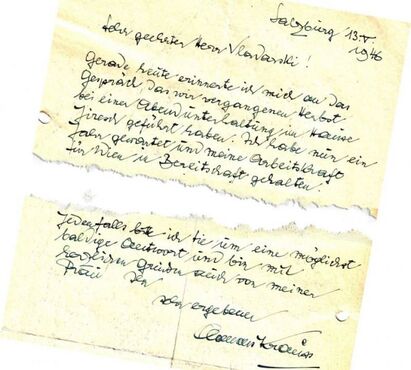 Salzburg 13.V.
1946
Sehr geehrter Herr Vladarski!
Gerade heute erinnerte ich mich an das
Gespräch das wir vergangenen Herbst
bei einer Abendunterhaltung im Hause
geführt haben. Ich habe nun ein
Jahr gewartet und meine Arbeitskraft
für Wien in Bereitschaft gehalten.
Jedenfalls bitte ich Sie um eine möglichst
baldige Antwort und bin mit
herzlichen Grüßen auch von meiner
Frau Ihr
sehr ergebener
Clemens Krauss